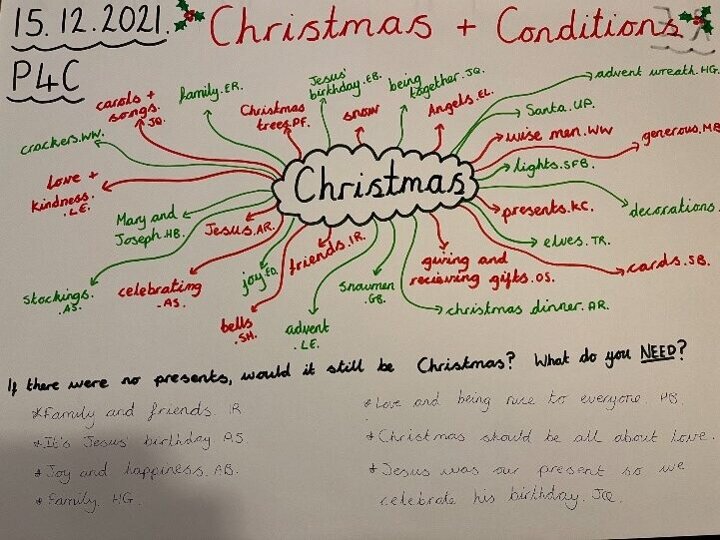 15.12.2021.
Christmas + Conditions
P4C
carols +
songs.
JQ.
family. ER.
Christmas
trees. PF.
Jesus'
birthday. EB.
snow
being
together. JQ.
Angels. EL.
advent wreath. HG.
Santa. UP.
wise men. WW
generous. MB
lights. SFB.
crackers. WW.
Love +
Kindness.
.LE.
Christmas
presents. KC.
decorations.
Mary and
Joseph. HB.
Jesus. AR.
friends. IR.
elves. TR.
cards. SB.
Stockings.
.AS.
celebrating
-AS.
joy. EO.
bells
.SH.
advent
.LE.
Snowmen
.GB.
giving and
recieving gifts. OS.
christmas dinner. AR.
If there were no presents, would it still be Christmas? What do you NEED?
*Family and friends. IR
*It's Jesus' birthday. AS.
*Joy and happiness. AB.
*Family. HG.
*Love and being nice to everyone. HB.
*Christmas should be all about love.
*Jesus was our present so we
celebrate his birthday. JQ.